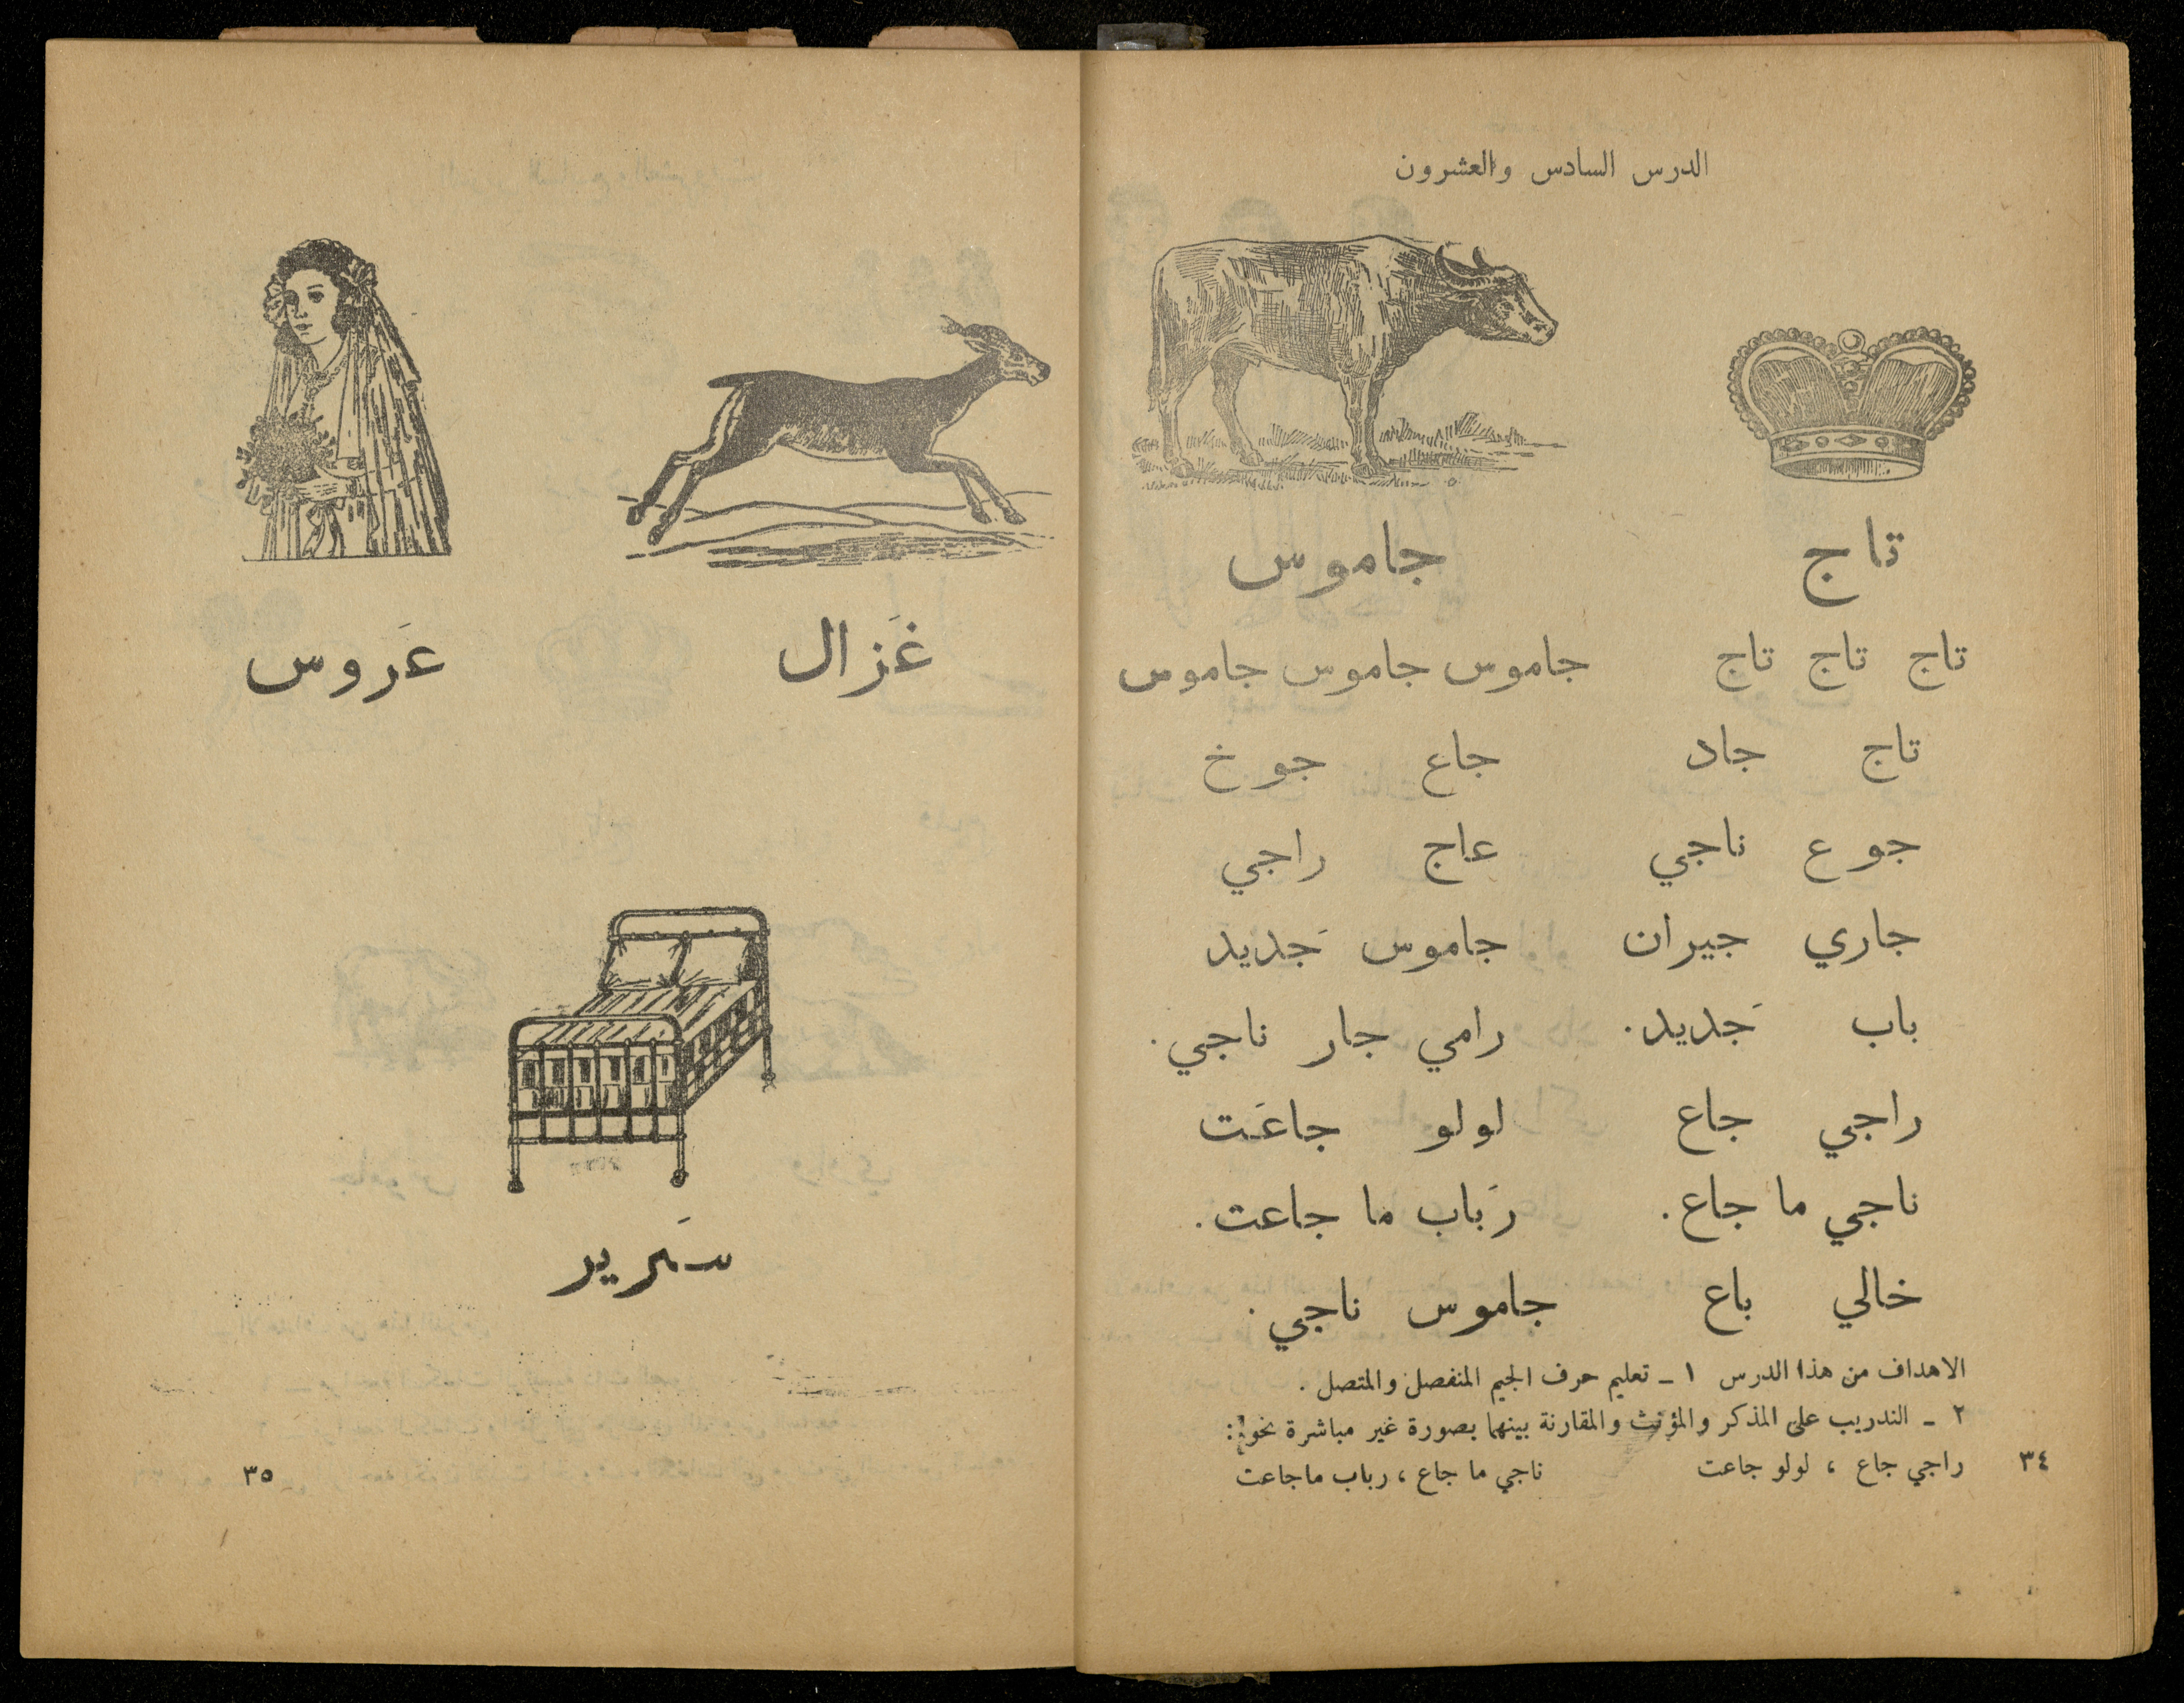 الدرس السادس والعشرون
تاج جاموس
تاج تاج تاج جاموس جاموس جاموس
تاج جاد جاع جوخ
جوع ناجي عاج راجي
جاري جيران جاموس جَديد
باب جَديد. رامي جار ناجي.
راجي جاع لولو جاعَت
ناجي ما جاع. رَباب ما جاعت.
خالي باع جاموس ناجي.
الاهداف من هذا الدرس ١ - تعليم حرف الجيم المنفصل والمتصل.
٢ - التدريب على المذكر والمؤنث والمقارنة بينهما بصورة غير مباشرة نحو:
راجي جاع ، لولو جاعت ناجي ما جاع ، رباب ماجاعت
٣٤
غَزال عَروس
سَرير
٣٥